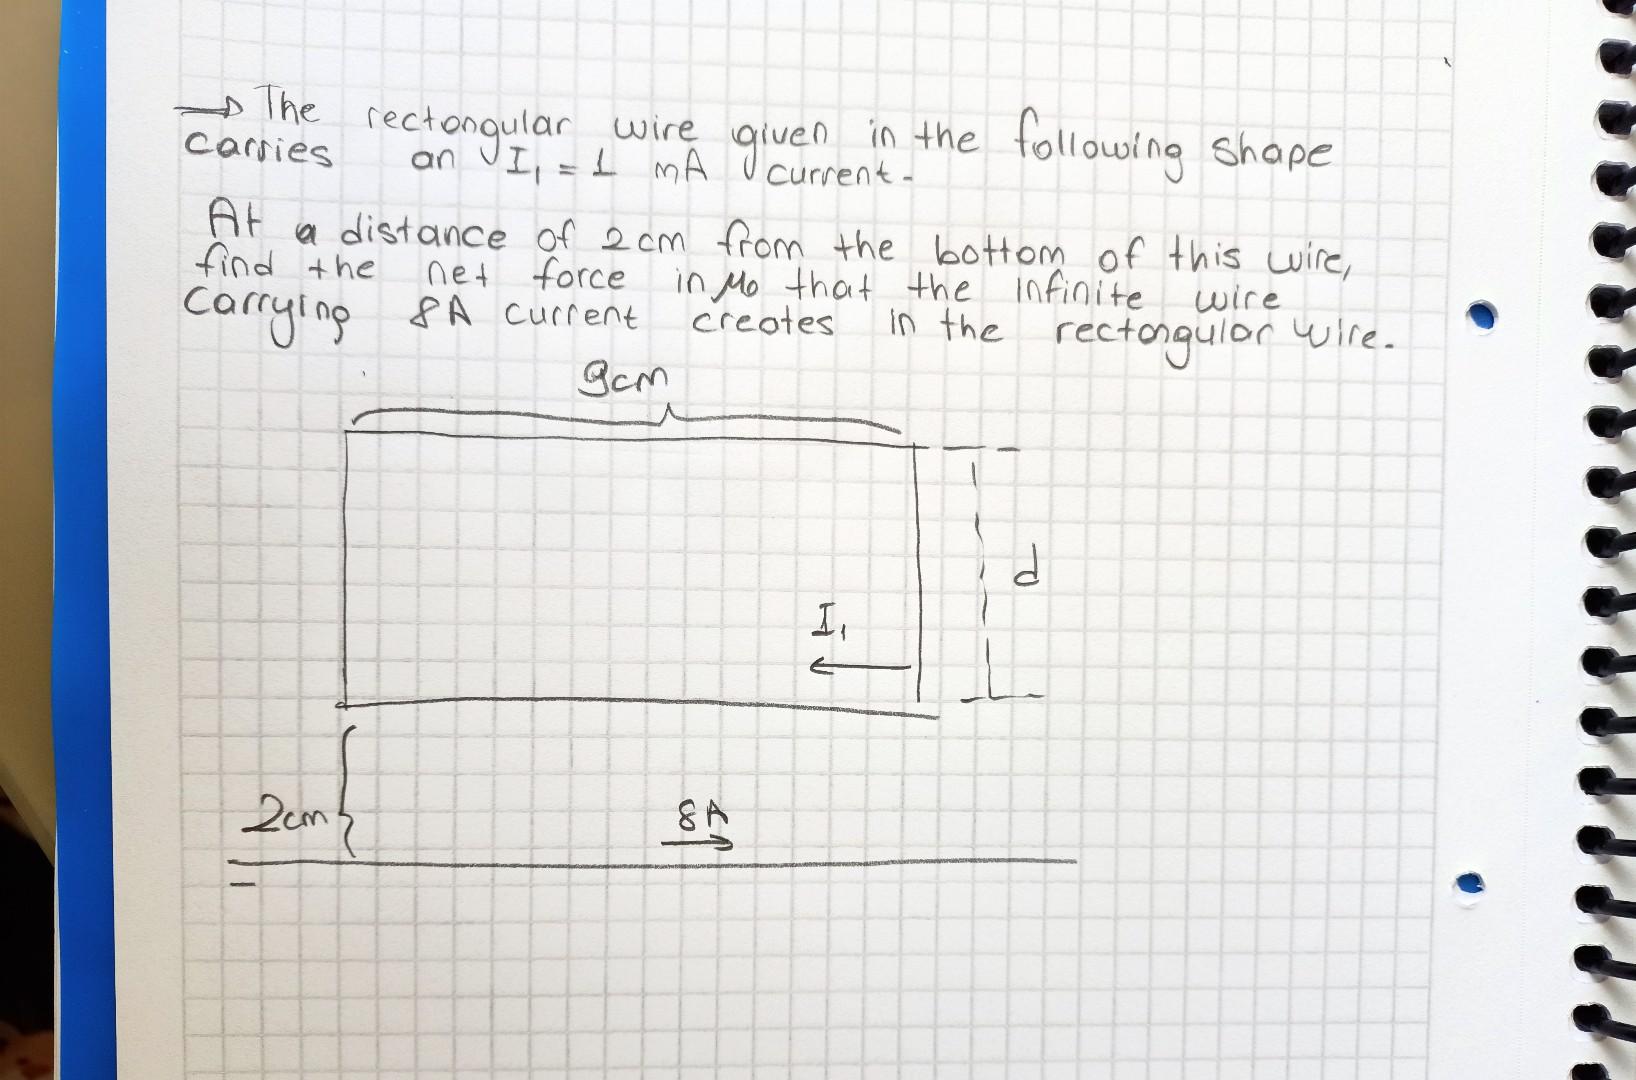 → The rectangular wire given in the following shape
carries an I₁ = 1 mA current.
At a distance of 2cm from the bottom of this wire,
find the net force in μ₀ that the infinite wire
carrying 8A current creates in the rectangular wire.
9cm
d
I₁
2cm
8A